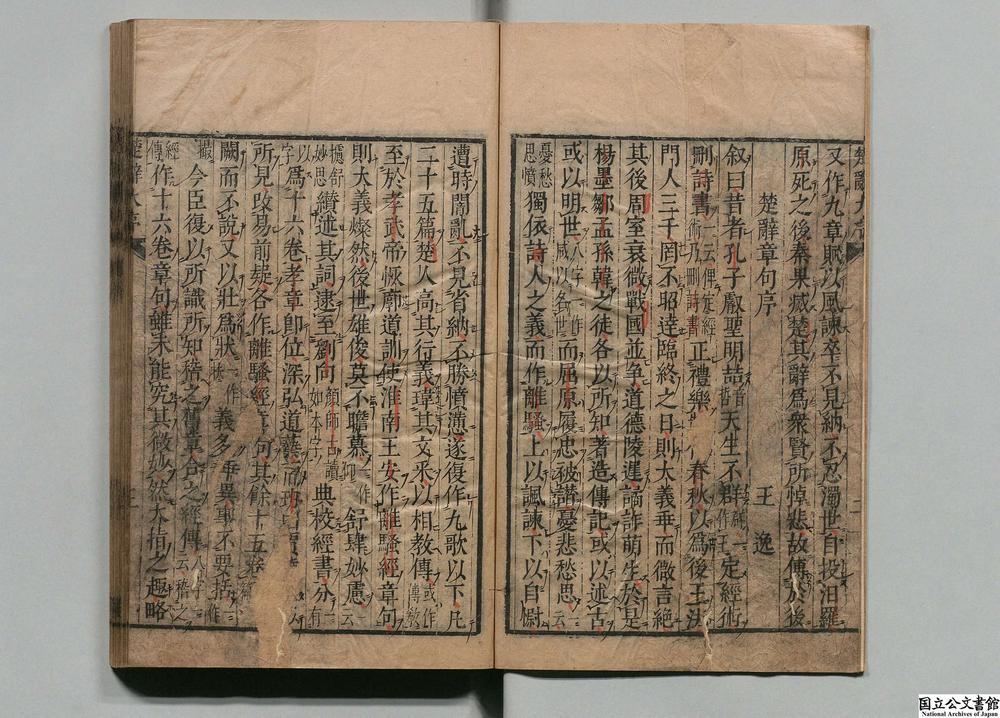 又作九章眂以風諫卒不見納不忍濁世自投汨羅
原死之後秦果滅楚其辭爲衆賢所悼悲故傳於後
楚辭章句序
王逸
叙曰昔者孔子叡聖明喆音哲天生不群一作王定經術
刪詩書一云俾定經術乃刪詩書正禮樂春秋以爲後王法
門人三千罔不昭達臨終之日則大義垂而微言絶
其後周室衰微戰國並争道德陵遲譎詐萌生於是
楊墨鄒孟孫韓之徒各以所知著造傳記或以述古
或以明世八字一作咸以名世而屈原履忠被譖憂悲愁思云
憂愁思憤獨依詩人之義而作離騷上以諷諫下以自慰
遭時闇亂不見省納不勝憤懣遂復作九歌以下凡
二十五篇楚人高其行義瑋其文采以相教傳或作傳教
至於孝武帝恢廓道訓使淮南王安作離騷經章句
則大義燦然後世雄俊莫不瞻慕一作仰舒肆妙慮云
攄舒妙思纘述其詞逮至劉向顔師古讀如本字典校經書分有
以字爲十六卷孝章即位深弘道藝而班
所見改易前疑各作離騷經章句其餘十五卷
闕而不說又以壯爲狀一作扶義多乖異事不要括一作
撮今臣復以所識所知稽之舊章合之經傳八字云稽之
經傳作十六卷章句雖未能究其微妙然大指之趣略
国立公文書館
National Archives of Japan